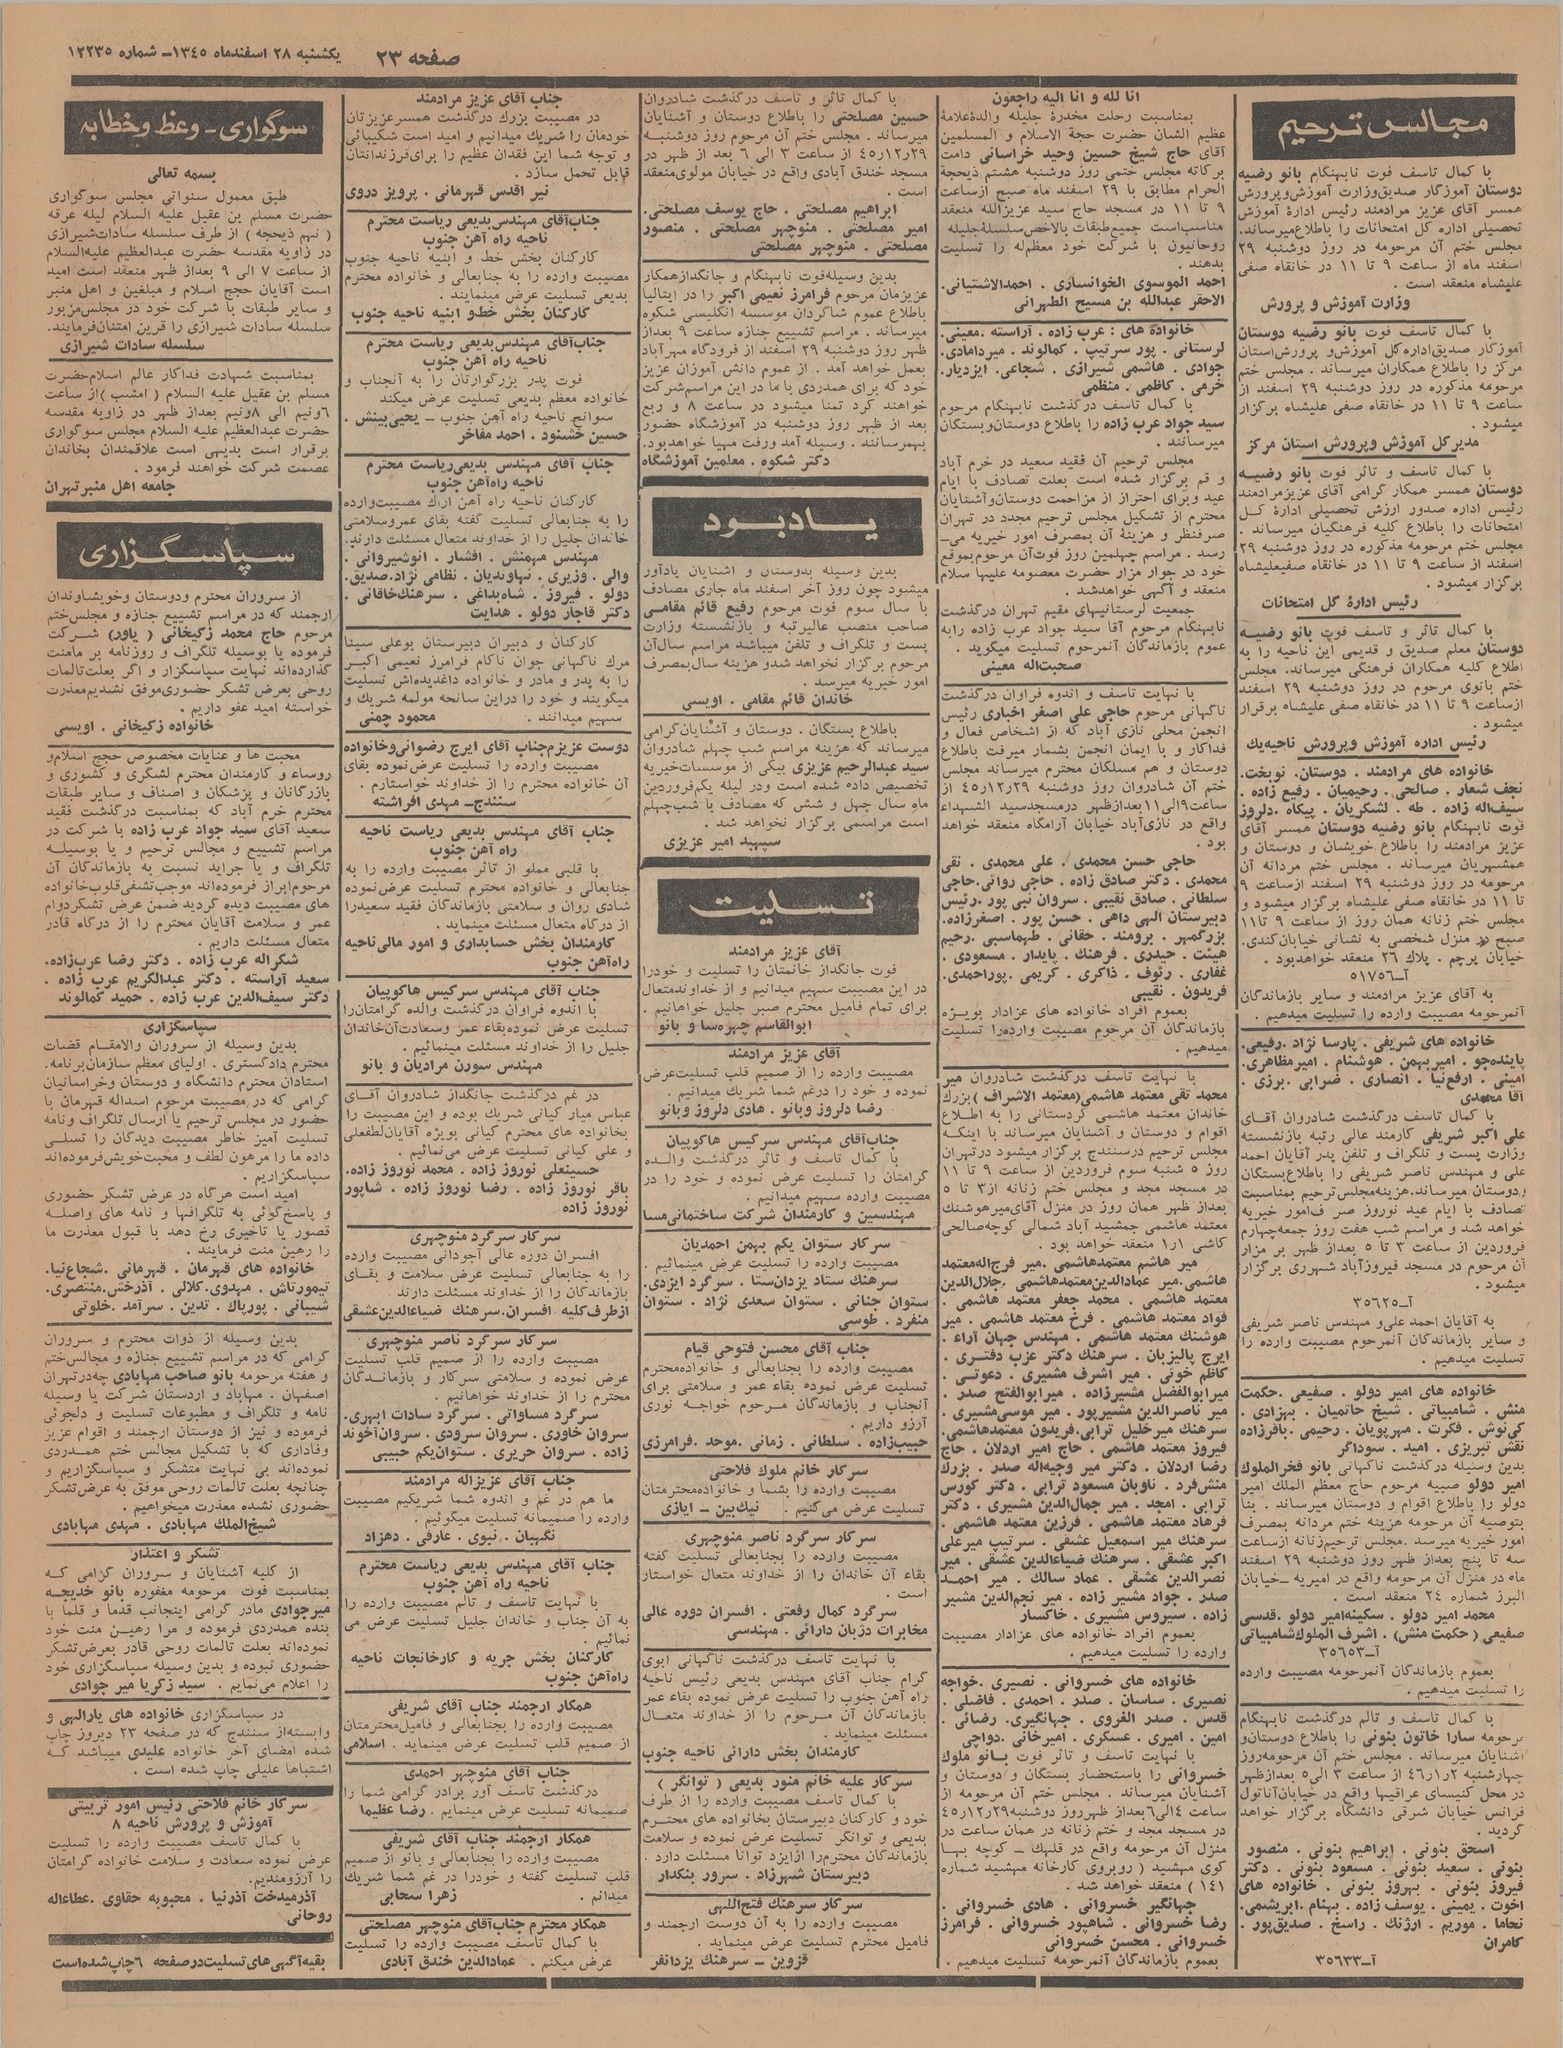 صفحه ۲۳
یکشنبه ۲۸ اسفندماه ۱۳۴۵ـ شماره ۱۲۲۳۵
مجالس ترحیم
با کمال تاسف فوت نابهنگام بانو رضیه
دوستان آموزگار صدیق وزارت آموزش و پرورش
همسر آقای عزیز مرادمند رئیس ادارهٔ آموزش
تحصیلی اداره کل امتحانات را باطلاع میرساند.
مجلس ختم آن مرحومه در روز دوشنبه ۲۹
اسفند ماه از ساعت ۹ تا ۱۱ در خانقاه صفی
علیشاه منعقد است.
وزارت آموزش و پرورش
با کمال تاسف فوت بانو رضیه دوستان
آموزگار صدیق اداره کل آموزش و پرورش استان
مرکز را باطلاع همکاران میرساند. مجلس ختم
مرحومه مذکوره در روز دوشنبه ۲۹ اسفند از
ساعت ۹ تا ۱۱ در خانقاه صفی علیشاه برگزار
میشود.
مدیر کل آموزش و پرورش استان مرکز
با کمال تاسف و تاثر فوت بانو رضیه
دوستان همسر همکار گرامی آقای عزیز مرادمند
رئیس اداره صدور ارزش تحصیلی ادارهٔ کل
امتحانات را باطلاع کلیه فرهنگیان میرساند.
مجلس ختم مرحومه مذکوره در روز دوشنبه ۲۹
اسفند از ساعت ۹ تا ۱۱ در خانقاه صفیعلیشاه
برگزار میشود.
رئیس ادارهٔ کل امتحانات
با کمال تاثر و تاسف فوت بانو رضیه
دوستان معلم صدیق و قدیمی این ناحیه را به
اطلاع کلیه همکاران فرهنگی میرساند. مجلس
ختم بانوی مرحوم در روز دوشنبه ۲۹ اسفند
از ساعت ۹ تا ۱۱ در خانقاه صفی علیشاه برقرار
میشود.
رئیس اداره آموزش و پرورش ناحیه یك
خانواده های مرادمند. دوستان. نوبخت.
نجف شعار. صالحی. رحیمیان. رفیع زاده.
سیف اله زاده. طه. لشکریان. پیکاه. دلروز
فوت نابهنگام بانو رضیه دوستان همسر آقای
عزیز مرادمند را باطلاع خویشان و دوستان و
همشهریان میرساند. مجلس ختم مردانه آن
مرحومه در روز دوشنبه ۲۹ اسفند از ساعت ۹
تا ۱۱ در خانقاه صفی علیشاه برگزار میشود و
مجلس ختم زنانه همان روز از ساعت ۹ تا ۱۱
صبح در منزل شخصی به نشانی خیابان کندی.
خیابان پرچم. پلاک ۲۶ منعقد خواهد بود.
آـ۵۱۷۵۶
به آقای عزیز مرادمند و سایر بازماندگان
آنمرحومه مصیبت وارده را تسلیت میدهیم.
خانواده های شریفی. پارسا نژاد. رفیعی.
پاینده جو. امیر بهمن. هوشنام. امیر مظاهری.
امینی. ارفع نیا. انصاری. ضرابی. برزی.
آقا محمدی
با کمال تاسف درگذشت شادروان آقای
علی اکبر شریفی کارمند عالی رتبه بازنشسته
وزارت پست و تلگراف و تلفن پدر آقایان احمد
علی و مهندس ناصر شریفی را باطلاع بستگان
و دوستان میرساند. هزینه مجلس ترحیم بمناسبت
تصادف با ایام عید نوروز صرف امور خیریه
خواهد شد و مراسم شب هفت روز جمعه چهارم
فروردین از ساعت ۳ تا ۵ بعداز ظهر بر مزار
آن مرحوم در مسجد فیروزآباد شهرری برگزار
میشود.
آـ۳۵۶۲۵
به آقایان احمد علی و مهندس ناصر شریفی
و سایر بازماندگان آنمرحوم مصیبت وارده را
تسلیت میدهیم.
خانواده های امیر دولو. صفیعی. حکمت
منش. شامبیاتی. شیخ حاتمیان. بهزادی.
کی نوش. فکرت. مهرپویان. رحیمی. باقرزاده
نقش تبریزی. امید. سوداگر
بدین وسیله درگذشت ناگهانی بانو فخرالملوك
امیر دولو صبیه مرحوم حاج معظم الملك امیر
دولو را باطلاع اقوام و دوستان میرساند. بنا
بتوصیه آن مرحومه هزینه ختم مردانه بمصرف
امور خیریه میرسد. مجلس ترحیم زنانه از ساعت
سه تا پنج بعداز ظهر روز دوشنبه ۲۹ اسفند
ماه در منزل آن مرحومه واقع در امیریه ـ خیابان
البرز شماره ۲۴ منعقد است.
محمد امیر دولو. سکینه امیر دولو. قدسی
صفیعی (حکمت منش). اشرف الملوك شامبیاتی
آـ۳۵۶۵۳
بعموم بازماندگان آنمرحومه مصیبت وارده
را تسلیت میدهیم.
با کمال تاسف و تالم درگذشت نابهنگام
مرحومه سارا خاتون بنونی را باطلاع دوستان و
آشنایان میرساند. مجلس ختم آن مرحومه روز
چهارشنبه ۴۶ر۱ر۲ از ساعت ۳ الی ۵ بعداز ظهر
در محل کنیسای عراقیها واقع در خیابان آناتول
فرانس خیابان شرقی دانشگاه برگزار خواهد
گردید.
اسحق بنونی. ابراهیم بنونی. منصور
بنونی. سعید بنونی. مسعود بنونی. دکتر
فیروز بنونی. بهروز بنونی. خانواده های
اخوت. یمینی. یوسف زاده. بهنام. ابریشمی.
نجاما. موریم. ارژنك. راسخ. صدیق پور.
کامران
آـ۳۵۶۳۳
انا لله و انا الیه راجعون
بمناسبت رحلت مخدرهٔ جلیله والدهٔ علامهٔ
عظیم الشان حضرت حجة الاسلام و المسلمین
آقای حاج شیخ حسین وحید خراسانی دامت
برکاته مجلس ختمی روز دوشنبه هشتم ذیحجة
الحرام مطابق با ۲۹ اسفند ماه صبح از ساعت
۹ تا ۱۱ در مسجد حاج سید عزیز الله منعقد
مناسب است جمیع طبقات بالاخص سلسلهٔ جلیله
روحانیون با شرکت خود معظم له را تسلیت
بدهند.
احمد الموسوی الخوانساری. احمد الاشتیانی.
الاحقر عبدالله بن مسیح الطهرانی
خانواده های: عرب زاده. آراسته. معینی.
لرستانی. پور سرتیپ. کمالوند. میردامادی.
جوادی. هاشمی شیرازی. شجاعی. ایزدیار.
خرمی. کاظمی. منظمی
با کمال تاسف درگذشت نابهنگام مرحوم
سید جواد عرب زاده را باطلاع دوستان و بستگان
میرسانند.
مجلس ترحیم آن فقید سعید در خرم آباد
و قم برگزار شده است بعلت تصادف با ایام
عید و برای احتراز از مزاحمت دوستان و آشنایان
محترم از تشکیل مجلس ترحیم مجدد در تهران
صرفنظر و هزینهٔ آن بمصرف امور خیریه می‌ـ
رسد. مراسم چهلمین روز فوت آن مرحوم بموقع
خود در جوار مزار حضرت معصومه علیها سلام
منعقد و آگهی خواهد شد.
جمعیت لرستانیهای مقیم تهران درگذشت
نابهنگام مرحوم آقا سید جواد عرب زاده را به
عموم بازماندگان آنمرحوم تسلیت میگوید.
صحبت اله معینی
با نهایت تاسف و اندوه فراوان درگذشت
ناگهانی مرحوم حاجی علی اصغر اخباری رئیس
انجمن محلی نازی آباد که از اشخاص فعال و
فداکار و با ایمان انجمن بشمار میرفت باطلاع
دوستان و هم مسلکان محترم میرساند مجلس
ختم آن شادروان روز دوشنبه ۴۵ر۱۲ر۲۹ از
ساعت ۹ الی ۱۱ بعداز ظهر در مسجد سید الشهداء
واقع در نازی آباد خیابان آرامگاه منعقد خواهد
بود.
حاجی حسن محمدی. علی محمدی. نقی
محمدی. دکتر صادق زاده. حاجی روانی. حاجی
سلطانی. صادق نقیبی. سروان نبی پور. رئیس
دبیرستان الهی داهی. حسن پور. اصغرزاده.
بزرگمهر. برومند. حقانی. طهماسبی. رحیم
هیئت. حیدری. فرهنك. پایدار. مسعودی.
غفاری. رئوف. ذاکری. کریمی. پور احمدی.
فریدون. نقیبی
بعموم افراد خانواده های عزادار بویژه
بازماندگان آن مرحوم مصیبت وارده را تسلیت
میدهیم.
با نهایت تاسف درگذشت شادروان میر
محمد تقی معتمد هاشمی (معتمد الاشراف) بزرك
خاندان معتمد هاشمی کردستانی را به اطلاع
اقوام و دوستان و آشنایان میرساند با اینکه
مجلس ترحیم در سنندج برگزار میشود در تهران
روز ۵ شنبه سوم فروردین از ساعت ۹ تا ۱۱
در مسجد مجد و مجلس ختم زنانه از ۳ تا ۵
بعداز ظهر همان روز در منزل آقای میر هوشنك
معتمد هاشمی جمشید آباد شمالی کوچه صالحی
کاشی ۱ر۱ منعقد خواهد بود.
میر هاشم معتمد هاشمی. میر فرج اله معتمد
هاشمی. میر عمادالدین معتمد هاشمی. جلال الدین
معتمد هاشمی. محمد جعفر معتمد هاشمی.
فواد معتمد هاشمی. فرخ معتمد هاشمی. میر
هوشنك معتمد هاشمی. مهندس جهان آراء.
ایرج پالیزبان. سرهنك دکتر عزب دفتری.
کاظم خونی. میر اشرف مشیری. دعوتی.
میر ابوالفضل مشیرزاده. میر ابوالفتح صدر.
میر ناصرالدین مشیرپور. میر موسی مشیری.
سرهنك میر خلیل ترابی. فریدون معتمد هاشمی.
فیروز معتمد هاشمی. حاج امیر اردلان. حاج
رضا اردلان. دکتر میر وجیه اله صدر. بزرك
منش فرد. ناوبان مسعود ترابی. دکتر کورس
ترابی. امجد. میر جمال الدین مشیری. دکتر
فرهاد معتمد هاشمی. فرزین معتمد هاشمی.
سرهنك میر اسمعیل عشقی. سرتیپ میر علی
اکبر عشقی. سرهنك ضیاءالدین عشقی. میر
نصرالدین عشقی. عماد سالك. میر احمد
صدر. جواد مشیر زاده. میر نجم الدین مشیر
زاده. سیروس مشیری. خاکسار
بعموم افراد خانواده های عزادار مصیبت
وارده را تسلیت میدهیم.
خانواده های خسروانی. نصیری. خواجه
نصیری. ساسان. صدر. احمدی. فاضلی.
قدس. صدر الغروی. جهانگیری. رضائی.
امین. امیری. عسکری. امیرخانی. دواچی
با نهایت تاسف و تاثر فوت بانو ملوك
خسروانی را باستحضار بستگان و دوستان و
آشنایان میرساند. مجلس ختم آن مرحومه از
ساعت ۴ الی ۶ بعداز ظهر روز دوشنبه ۴۵ر۱۲ر۲۹
در مسجد مجد و ختم زنانه در همان ساعت در
منزل آن مرحومه واقع در قلهك ـ کوچه بهـا
کوی مهشید (روبروی کارخانه مهشید شماره
۱۴۱) منعقد خواهد شد.
جهانگیر خسروانی. هادی خسروانی.
رضا خسروانی. شاهپور خسروانی. فرامرز
خسروانی. محسن خسروانی
بعموم بازماندگان آنمرحومه تسلیت میدهیم.
با کمال تاثر و تاسف درگذشت شادروان
حسین مصلحتی را باطلاع دوستان و آشنایان
میرساند. مجلس ختم آن مرحوم روز دوشنبه
۴۵ر۱۲ر۲۹ از ساعت ۳ الی ۶ بعد از ظهر در
مسجد خندق آبادی واقع در خیابان مولوی منعقد
است.
ابراهیم مصلحتی. حاج یوسف مصلحتی.
امیر مصلحتی. منوچهر مصلحتی. منصور
مصلحتی. منوچهر مصلحتی
بدین وسیله فوت نابهنگام و جانگداز همکار
عزیزمان مرحوم فرامرز نعیمی اکبر را در ایتالیا
باطلاع عموم شاگردان موسسه انگلیسی شکوه
میرساند. مراسم تشییع جنازه ساعت ۹ بعداز
ظهر روز دوشنبه ۲۹ اسفند از فرودگاه مهرآباد
بعمل خواهد آمد. از عموم دانش آموزان عزیز
خود که برای همدردی با ما در این مراسم شرکت
خواهند کرد تمنا میشود در ساعت ۸ و ربع
بعد از ظهر روز دوشنبه در آموزشگاه حضور
بهمرسانند. وسیله آمد ورفت مهیا خواهد بود.
دکتر شکوه. معلمین آموزشگاه
یادبود
بدین وسیله بدوستان و آشنایان یادآور
میشود چون روز آخر اسفند ماه جاری مصادف
با سال سوم فوت مرحوم رفیع قائم مقامی
صاحب منصب عالیرتبه و بازنشسته وزارت
پست و تلگراف و تلفن میباشد مراسم سال آن
مرحوم برگزار نخواهد شد و هزینه سال بمصرف
امور خیریه میرسد.
خاندان قائم مقامی. اویسی
باطلاع بستگان. دوستان و آشنایان گرامی
میرساند که هزینه مراسم شب چهلم شادروان
سید عبدالرحیم عزیزی بیکی از موسسات خیریه
تخصیص داده شده است ودر لیله یکم فروردین
ماه سال چهل و شش که مصادف با شب چهلم
است مراسمی برگزار نخواهد شد.
سپهبد امیر عزیزی
تسلیت
آقای عزیز مرادمند
فوت جانگداز خانمتان را تسلیت و خود را
در این مصیبت سهیم میدانیم و از خداوند متعال
برای تمام فامیل محترم صبر جلیل خواهانیم.
ابوالقاسم چهره سا و بانو
آقای عزیز مرادمند
مصیبت وارده را از صمیم قلب تسلیت عرض
نموده و خود را در غم شما شریك میدانیم.
رضا دلروز و بانو. هادی دلروز و بانو
جناب آقای مهندس سرکیس هاکوپیان
با کمال تاسف و تاثر درگذشت والـده
گرامتان را تسلیت عرض نموده و خود را در
مصیبت وارده سهیم میدانیم.
مهندسین و کارمندان شرکت ساختمانی مسا
سرکار ستوان یکم بهمن احمدیان
مصیبت وارده را تسلیت عرض مینمائیم.
سرهنك ستاد یزدان ستا. سرگرد ایزدی.
ستوان جنانی. ستوان سعدی نژاد. ستوان
منفرد. طوسی
جناب آقای محسن فتوحی قیام
مصیبت وارده را بجنابعالی و خانواده محترم
تسلیت عرض نموده بقاء عمر و سلامتی برای
آنجناب و بازماندگان مرحوم خواجه نوری
آرزو داریم.
حبیب زاده. سلطانی. زمانی. موحد. فرامرزی
سرکار خانم ملوك فلاحتی
مصیبت وارده را بشما و خانواده محترمتان
تسلیت عرض می‌کنیم. نیك بین ـ ایازی
سرکار سرگرد ناصر منوچهری
مصیبت وارده را بجنابعالی تسلیت گفته
بقاء آن خاندان را از خداوند متعال خواستار
است.
سرگرد کمال رفعتی. افسران دوره عالی
مخابرات دژبان دارائی. مهندسی
با نهایت تاسف درگذشت ناگهانی ابوی
گرام جناب آقای مهندس بدیعی رئیس ناحیه
راه آهن جنوب را تسلیت عرض نموده بقاء عمر
بازماندگان آن مرحوم را از خداوند متعـال
مسئلت مینماید.
کارمندان بخش دارائی ناحیه جنوب
سرکار علیه خانم منور بدیعی (توانگر)
با کمال تاسف مصیبت وارده را از طرف
خود و کارکنان دبیرستان بخانواده های محترم
بدیعی و توانگر تسلیت عرض نموده و سلامت
بازماندگان محترم را از ایزد توانا مسئلت دارد.
دبیرستان شهرزاد. سرور بنکدار
سرکار سرهنك فتح اللهی
مصیبت وارده را به آن دوست ارجمند و
فامیل محترم تسلیت عرض مینماید.
قزوین ـ سرهنك یزدانفر
جناب آقای عزیز مرادمند
در مصیبت بزرك درگذشت همسر عزیزتان
خودمان را شریك میدانیم و امید است شکیبائی
و توجه شما این فقدان عظیم را برای فرزندانتان
قابل تحمل سازد.
نیر اقدس قهرمانی. پرویز دروی
جناب آقای مهندس بدیعی ریاست محترم
ناحیه راه آهن جنوب
کارکنان بخش خط و ابنیه ناحیه جنوب
مصیبت وارده را به جنابعالی و خانواده محترم
بدیعی تسلیت عرض مینمایند.
کارکنان بخش خط و ابنیه ناحیه جنوب
جناب آقای مهندس بدیعی ریاست محترم
ناحیه راه آهن جنوب
فوت پدر بزرگوارتان را به آنجناب و
خانواده معظم بدیعی تسلیت عرض میکند
سوانح ناحیه راه آهن جنوب ـ یحیی بینش.
حسین خشنود. احمد مفاخر
جناب آقای مهندس بدیعی ریاست محترم
ناحیه راه آهن جنوب
کارکنان ناحیه راه آهن اراك مصیبت وارده
را به جنابعالی تسلیت گفته بقای عمر و سلامتی
خاندان جلیل را از خداوند متعال مسئلت دارند.
مهندس مهمنش. افشار. انوشیروانی.
والی. وزیری. نهاوندیان. نظامی نژاد. صدیق.
دولو. فیروز. شاه بداغی. سرهنك خاقانی.
دکتر قاجار دولو. هدایت
کارکنان و دبیران دبیرستان بوعلی سینا
مرك ناگهانی جوان ناکام فرامرز نعیمی اکبر
را به پدر و مادر و خانواده داغدیده اش تسلیت
میگویند و خود را در این سانحه مولمه شریك و
سهیم میدانند. محمود چمنی
دوست عزیزم جناب آقای ایرج رضوانی و خانواده
مصیبت وارده را تسلیت عرض نموده بقای
آن خانواده محترم را از خداوند خواستارم.
سنندج ـ مهدی افراشته
جناب آقای مهندس بدیعی ریاست ناحیه
راه آهن جنوب
با قلبی مملو از تاثر مصیبت وارده را به
جنابعالی و خانواده محترم تسلیت عرض نموده
شادی روان و سلامتی بازماندگان فقید سعید را
از درگاه متعال مسئلت مینماید.
کارمندان بخش حسابداری و امور مالی ناحیه
راه آهن جنوب
جناب آقای مهندس سرکیس هاکوپیان
با اندوه فراوان درگذشت والده گرامتان را
تسلیت عرض نموده بقاء عمر وسعادت آن خاندان
جلیل را از خداوند مسئلت مینمائیم.
مهندس سورن مرادیان و بانو
در غم درگذشت جانگداز شادروان آقـای
عباس میار کیانی شریك بوده و این مصیبت را
بخانواده های محترم کیانی بویژه آقایان لطفعلی
و علی کیانی تسلیت عرض می‌نمائیم.
حسینعلی نوروز زاده. محمد نوروز زاده.
باقر نوروز زاده. رضا نوروز زاده. شاپور
نوروز زاده
سرکار سرگرد منوچهری
افسران دوره عالی آجودانی مصیبت وارده
را به جنابعالی تسلیت عرض سلامت و بقـای
بازماندگان را از خداوند مسئلت دارند
از طرف کلیه افسران. سرهنك ضیاءالدین عشقی
سرکار سرگرد ناصر منوچهری
مصیبت وارده را از صمیم قلب تسلیت
عرض نموده و سلامتی سرکار و بازماندگان
محترم را از خداوند خواهانیم.
سرگرد مساواتی. سرگرد سادات ابهری.
سروان خاوری. سروان سرودی. سروان آخوند
زاده. سروان حریری. ستوان یکم حبیبی
جناب آقای عزیزاله مرادمند
ما هم در غم و اندوه شما شریکیم مصیبت
وارده را صمیمانه تسلیت میگوئیم.
نگهبان. نبوی. عارفی. دهزاد
جناب آقای مهندس بدیعی ریاست محترم
ناحیه راه آهن جنوب
با نهایت تاسف و تالم مصیبت وارده را
به آن جناب و خاندان جلیل تسلیت عرض می
نمائیم.
کارکنان بخش جریه و کارخانجات ناحیه
راه آهن جنوب
همکار ارجمند جناب آقای شریفی
مصیبت وارده را بجنابعالی و فامیل محترمتان
از صمیم قلب تسلیت عرض مینماید. اسلامی
جناب آقای منوچهر احمدی
درگذشت تاسف آور برادر گرامی شما را
صمیمانه تسلیت عرض مینمایم. رضا عظیما
همکار ارجمند جناب آقای شریفی
مصیبت وارده را بجنابعالی و بانو از صمیم
قلب تسلیت گفته و خود را در غم شما شریك
میدانم. زهرا سحابی
همکار محترم جناب آقای منوچهر مصلحتی
با کمال تاسف مصیبت وارده را تسلیت
عرض میکنم. عمادالدین خندق آبادی
سوگواری ـ وعظ و خطابه
بسمه تعالی
طبق معمول سنواتی مجلس سوگواری
حضرت مسلم بن عقیل علیه السلام لیله عرفه
(نهم ذیحجه) از طرف سلسله سادات شیرازی
در زاویه مقدسه حضرت عبدالعظیم علیه السلام
از ساعت ۷ الی ۹ بعداز ظهر منعقد است امید
است آقایان حجج اسلام و مبلغین و اهل منبر
و سایر طبقات با شرکت خود در مجلس مزبور
سلسله سادات شیرازی را قرین امتنان فرمایند.
سلسله سادات شیرازی
بمناسبت شهادت فداکار عالم اسلام حضرت
مسلم بن عقیل علیه السلام (امشب) از ساعت
۶ ونیم الی ۸ ونیم بعداز ظهر در زاویه مقدسه
حضرت عبدالعظیم علیه السلام مجلس سوگواری
برقرار است بدیهی است علاقمندان بخاندان
عصمت شرکت خواهند فرمود.
جامعه اهل منبر تهران
سپاسگزاری
از سروران محترم و دوستان و خویشاوندان
ارجمند که در مراسم تشییع جنازه و مجلس ختم
مرحوم حاج محمد زکیخانی (یاور) شرکت
فرموده یا بوسیله تلگراف و روزنامه بر ما منت
گذارده اند نهایت سپاسگزار و اگر بعلت تالمات
روحی بعرض تشکر حضوری موفق نشدیم معذرت
خواسته امید عفو داریم.
خانواده زکیخانی. اویسی
محبت ها و عنایات مخصوص حجج اسلام و
روساء و کارمندان محترم لشگری و کشوری و
بازرگانان و پزشکان و اصناف و سایر طبقات
محترم خرم آباد که بمناسبت درگذشت فقید
سعید آقای سید جواد عرب زاده با شرکت در
مراسم تشییع و مجالس ترحیم و یا بوسیله
تلگراف و یا جراید نسبت به بازماندگان آن
مرحوم ابراز فرموده اند موجب تشفی قلوب خانواده
های مصیبت دیده گردید ضمن عرض تشکر دوام
عمر و سلامت آقایان محترم را از درگاه قادر
متعال مسئلت داریم.
شکراله عرب زاده. دکتر رضا عرب زاده.
سعید آراسته. دکتر عبدالکریم عرب زاده.
دکتر سیف الدین عرب زاده. حمید کمالوند
سپاسگزاری
بدین وسیله از سروران والامقام قضات
محترم دادگستری. اولیای معظم سازمان برنامه.
استادان محترم دانشگاه و دوستان و خراسانیان
گرامی که در مصیبت مرحوم اسداله قهرمان با
حضور در مجلس ترحیم یا ارسال تلگراف و نامه
تسلیت آمیز خاطر مصیبت دیدگان را تسلی
داده ما را مرهون لطف و محبت خویش فرموده اند
سپاسگزاریم.
امید است هرگاه در عرض تشکر حضوری
و پاسخ گوئی به تلگرافها و نامه های واصله
قصور یا تاخیری رخ دهد با قبول معذرت ما
را رهین منت فرمایند.
خانواده های قهرمان. قهرمانی. شجاع نیا.
تیمورتاش. مهدوی. کلالی. آذرخش. منتصری.
شیبانی. پورپاك. تدین. سرآمد. خلوتی
بدین وسیله از ذوات محترم و سروران
گرامی که در مراسم تشییع جنازه و مجالس ختم
و هفته مرحومه بانو صاحب مهابادی چه در تهران
اصفهان. مهاباد و اردستان شرکت یا وسیله
نامه و تلگراف و مطبوعات تسلیت و دلجوئی
فرموده و نیز از دوستان ارجمند و اقوام عزیز
وفاداری که با تشکیل مجالس ختم همدردی
نموده اند بی نهایت متشکر و سپاسگزاریم و
چنانچه بعلت تالمات روحی موفق به عرض تشکر
حضوری نشده معذرت میخواهیم.
شیخ الملك مهابادی. مهدی مهابادی
تشکر و اعتذار
از کلیه آشنایان و سروران گرامی که
بمناسبت فوت مرحومه مغفوره بانو خدیجه
میرجوادی مادر گرامی اینجانب قدما و قلما با
بنده همدردی فرموده و مرا رهین منت خود
نموده اند بعلت تالمات روحی قادر بعرض تشکر
حضوری نبوده و بدین وسیله سپاسگزاری خود
را اعلام می‌نمایم. سید زکریا میر جوادی
در سپاسگزاری خانواده های یارالهی و
وابسته از سنندج که در صفحه ۲۳ دیروز چاپ
شده امضای آخر خانواده علیدی میباشد که
اشتباها علیلی چاپ شده است.
سرکار خانم فلاحتی رئیس امور تربیتی
آموزش و پرورش ناحیه ۸
با کمال تاسف مصیبت وارده را تسلیت
عرض نموده سعادت و سلامت خانواده گرامتان
را آرزومندیم.
آذرمیدخت آذرنیا. محبوبه حقاوی. عطاءاله
روحانی
بقیه آگهی های تسلیت در صفحه ۶ چاپ شده است